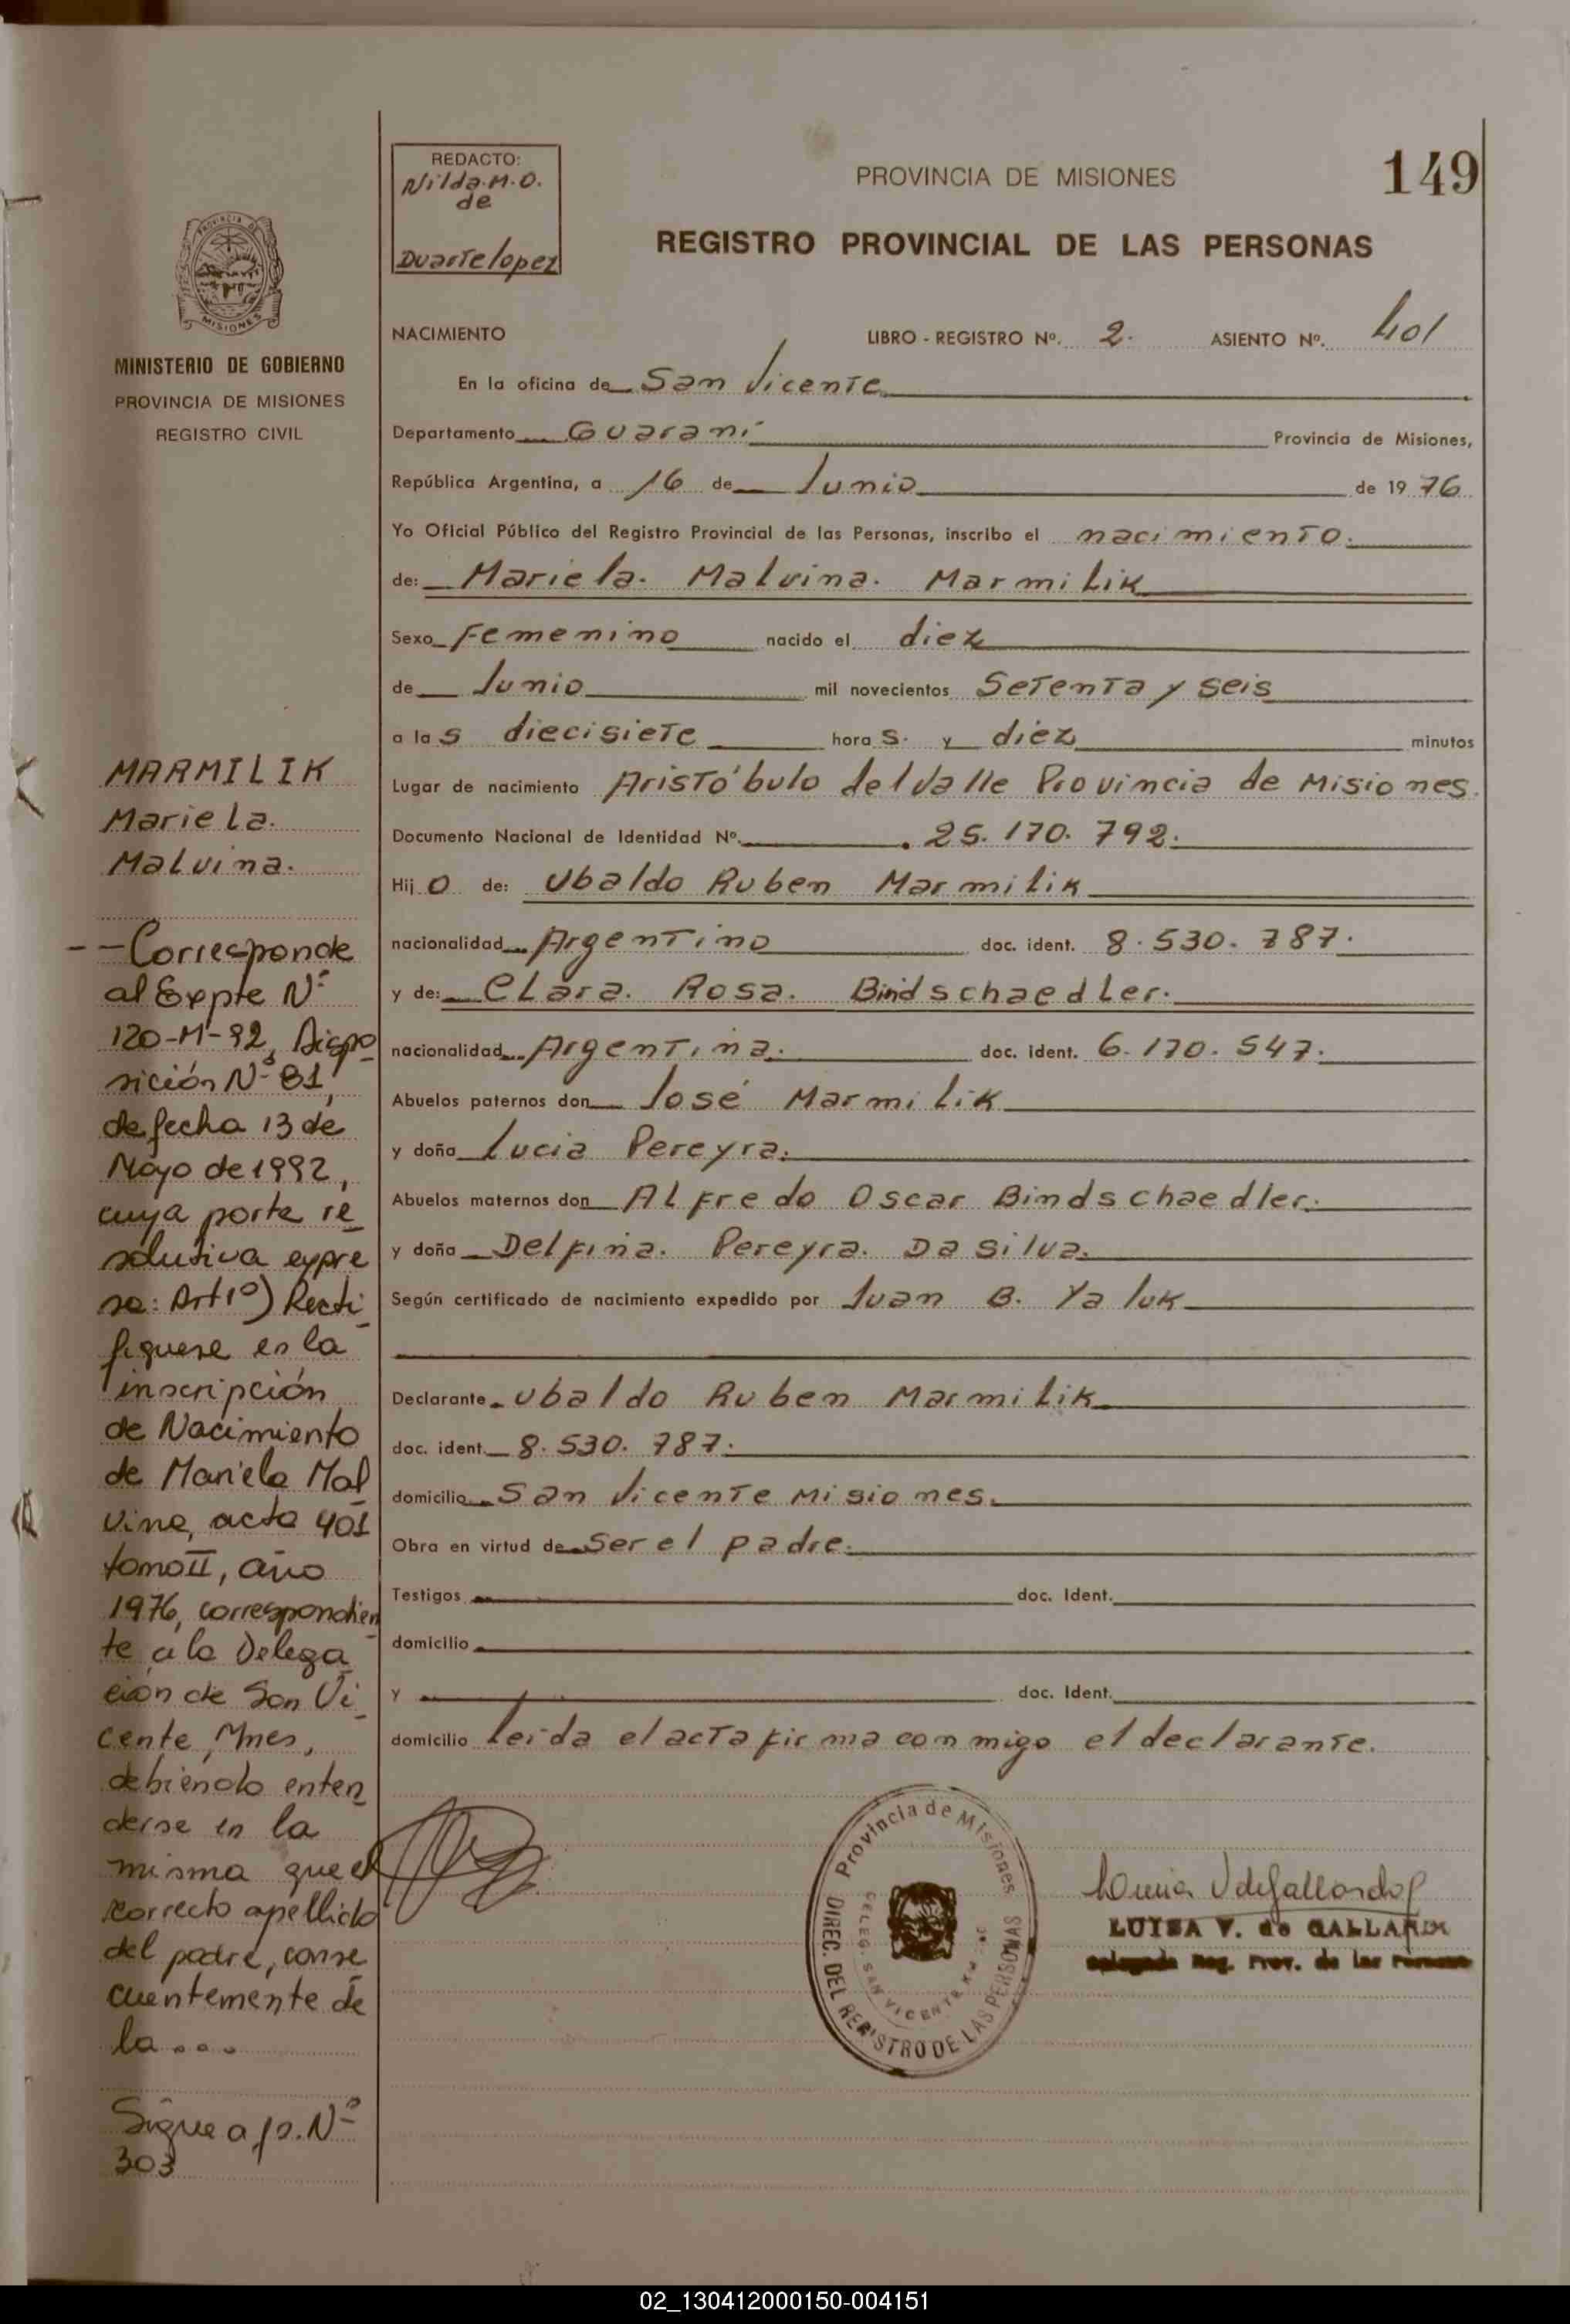 REDACTO:
Nilda.M.O.
de
Duartelopez
PROVINCIA DE MISIONES
149
REGISTRO PROVINCIAL DE LAS PERSONAS
PROVINCIA DE
MISIONES
MINISTERIO DE GOBIERNO
PROVINCIA DE MISIONES
REGISTRO CIVIL
NACIMIENTO LIBRO - REGISTRO Nº. 2. ASIENTO Nº. 401
En la oficina de San Vicente
Departamento Guaraní Provincia de Misiones,
República Argentina, a 16 de Junio de 19 76
Yo Oficial Público del Registro Provincial de las Personas, inscribo el nacimiento.
de: Mariela. Malvina. Marmilik
Sexo Femenino nacido el diez
de Junio mil novecientos Setenta y seis
a las diecisiete horas. y diez minutos
Lugar de nacimiento Aristóbulo del Valle Provincia de Misiones.
Documento Nacional de Identidad Nº. 25.170.792.
Hijo de: Ubaldo Ruben Marmilik
nacionalidad Argentino doc. ident. 8.530.787.
y de: Clara. Rosa. Bindschaedler.
nacionalidad Argentina. doc. ident. 6.170.547.
Abuelos paternos don José Marmilik
y doña Lucia Pereyra.
Abuelos maternos don Alfredo Oscar Bindschaedler.
y doña Delfina. Pereyra. Da Silva.
Según certificado de nacimiento expedido por Juan B. Yaluk
Declarante Ubaldo Ruben Marmilik
doc. ident. 8.530.787.
domicilio San Vicente Misiones.
Obra en virtud de Ser el padre.
Testigos doc. Ident.
domicilio
y doc. Ident.
domicilio leida el acta firma conmigo el declarante.
MARMILIK
Mariela.
Malvina.
--Corresponde
al Expte Nº
120-M-92, Dispo
sición Nº 81,
de fecha 13 de
Mayo de 1992,
cuya parte re
solutiva expre
sa: Art 1º) Recti
fiquese en la
inscripción
de Nacimiento
de Mariela Mal
vina, acta 401
tomo II, año
1976, correspondien
te a la Delega
ción de San Vi
cente, Mnes,
debiendo enten
derse en la
misma que el
correcto apellido
del padre, conse
cuentemente de
la...
Sigue a fs. Nº
303
Provincia de Misiones
DIREC. DEL REGISTRO DE LAS PERSONAS
DELEG. SAN VICENTE
LUISA V. de GALLARDO
Delegada Reg. Prov. de las Personas
02_130412000150-004151